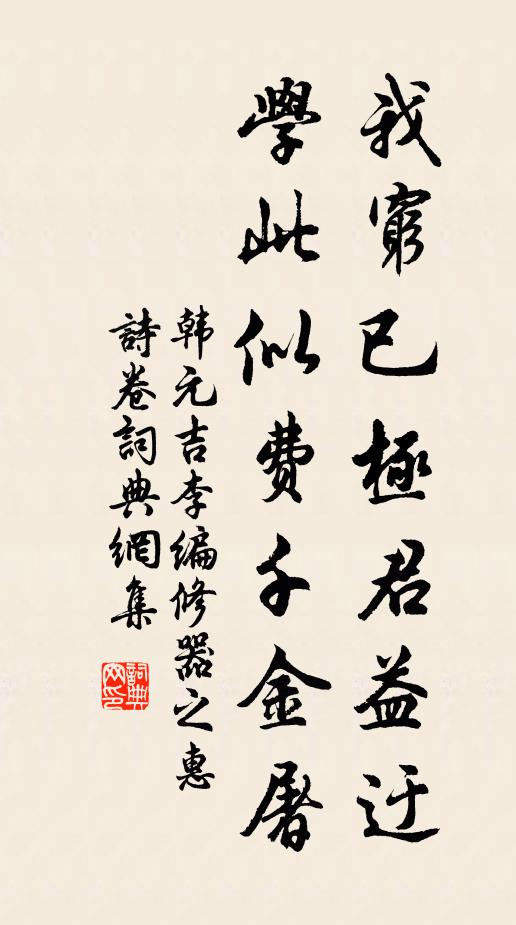 我窮已極君益迂
學此似費千金屠
韩元吉李编修器之惠
詩卷詞典網集
詞典網印